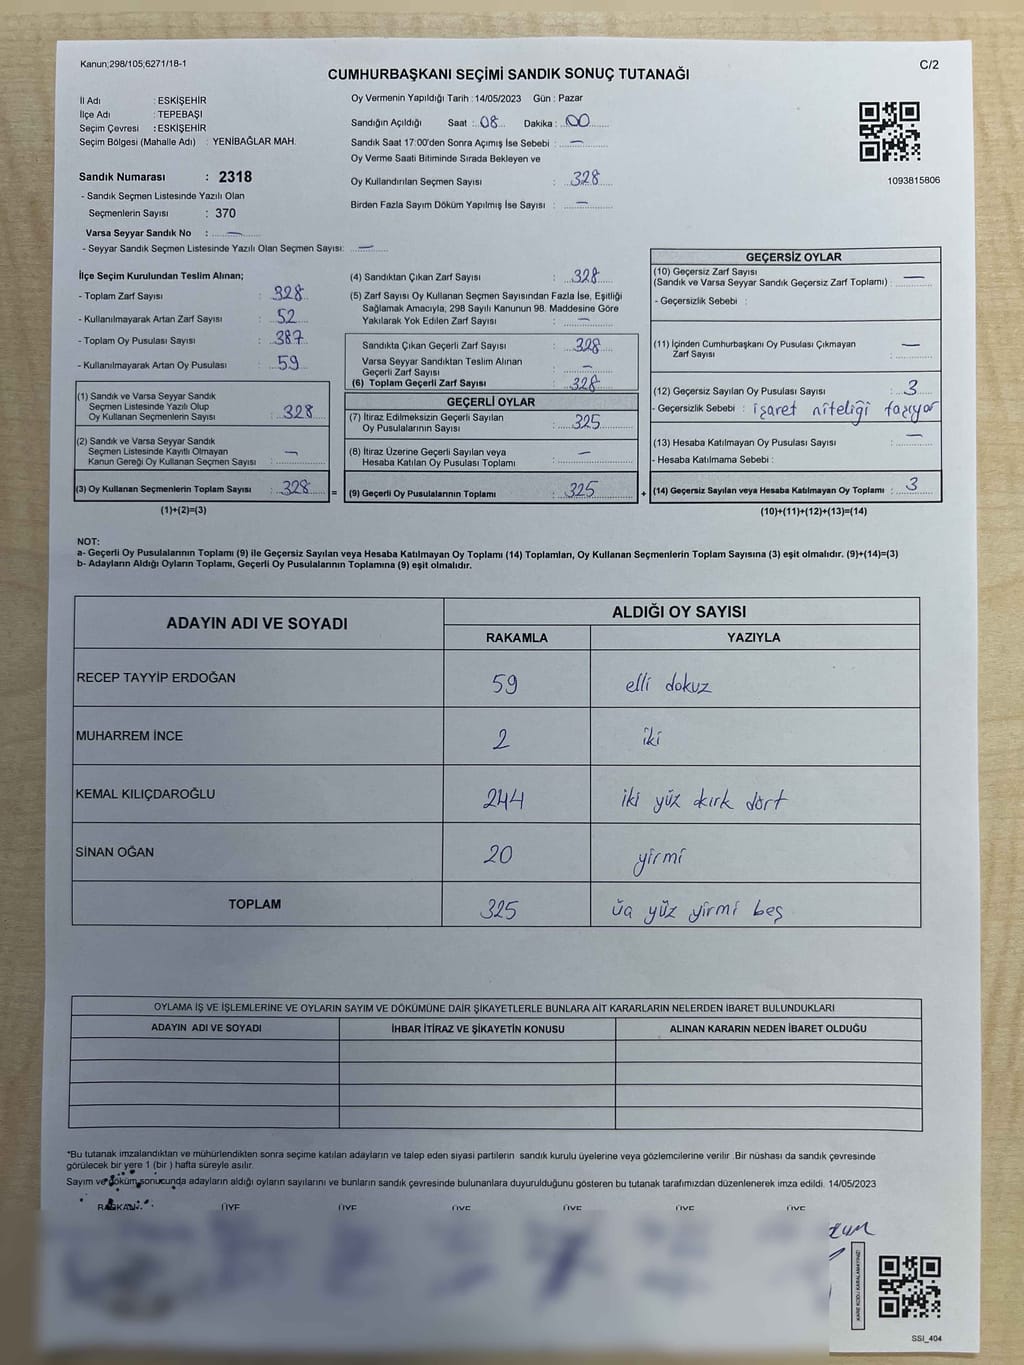 Kanun;298/105;6271/18-1
C/2
CUMHURBAŞKANI SEÇİMİ SANDIK SONUÇ TUTANAĞI
İl Adı : ESKİŞEHİR
İlçe Adı : TEPEBAŞI
Seçim Çevresi : ESKİŞEHİR
Seçim Bölgesi (Mahalle Adı) : YENİBAĞLAR MAH.
Sandık Numarası : 2318
- Sandık Seçmen Listesinde Yazılı Olan
Seçmenlerin Sayısı : 370
Varsa Seyyar Sandık No : —
- Seyyar Sandık Seçmen Listesinde Yazılı Olan Seçmen Sayısı: —
Oy Vermenin Yapıldığı Tarih : 14/05/2023 Gün : Pazar
Sandığın Açıldığı Saat : 08 Dakika : 00
Sandık Saat 17:00'den Sonra Açımış İse Sebebi : —
Oy Verme Saati Bitiminde Sırada Bekleyen ve
Oy Kullandırılan Seçmen Sayısı : 328
Birden Fazla Sayım Döküm Yapılmış İse Sayısı : —
1093815806
İlçe Seçim Kurulundan Teslim Alınan;
- Toplam Zarf Sayısı : 328
- Kullanılmayarak Artan Zarf Sayısı : 52
- Toplam Oy Pusulası Sayısı : 387
- Kullanılmayarak Artan Oy Pusulası : 59
(1) Sandık ve Varsa Seyyar Sandık
Seçmen Listesinde Yazılı Olup
Oy Kullanan Seçmenlerin Sayısı : 328
(2) Sandık ve Varsa Seyyar Sandık
Seçmen Listesinde Kayıtlı Olmayan
Kanun Gereği Oy Kullanan Seçmen Sayısı : —
(3) Oy Kullanan Seçmenlerin Toplam Sayısı : 328 =
(1)+(2)=(3)
(4) Sandıktan Çıkan Zarf Sayısı : 328
(5) Zarf Sayısı Oy Kullanan Seçmen Sayısından Fazla İse, Eşitliği
Sağlamak Amacıyla, 298 Sayılı Kanunun 98. Maddesine Göre
Yakılarak Yok Edilen Zarf Sayısı : —
Sandıkta Çıkan Geçerli Zarf Sayısı : 328
Varsa Seyyar Sandıktan Teslim Alınan
Geçerli Zarf Sayısı : —
(6) Toplam Geçerli Zarf Sayısı : 328
GEÇERLİ OYLAR
(7) İtiraz Edilmeksizin Geçerli Sayılan
Oy Pusulalarının Sayısı : 325
(8) İtiraz Üzerine Geçerli Sayılan veya
Hesaba Katılan Oy Pusulası Toplamı : —
(9) Geçerli Oy Pusulalarının Toplamı : 325 +
GEÇERSİZ OYLAR
(10) Geçersiz Zarf Sayısı
(Sandık ve Varsa Seyyar Sandık Geçersiz Zarf Toplamı) : —
- Geçersizlik Sebebi :
(11) İçinden Cumhurbaşkanı Oy Pusulası Çıkmayan
Zarf Sayısı : —
(12) Geçersiz Sayılan Oy Pusulası Sayısı : 3
- Geçersizlik Sebebi : işaret niteliği taşıyor
(13) Hesaba Katılmayan Oy Pusulası Sayısı : —
- Hesaba Katılmama Sebebi :
(14) Geçersiz Sayılan veya Hesaba Katılmayan Oy Toplamı : 3
(10)+(11)+(12)+(13)=(14)
NOT:
a- Geçerli Oy Pusulalarının Toplamı (9) ile Geçersiz Sayılan veya Hesaba Katılmayan Oy Toplamı (14) Toplamları, Oy Kullanan Seçmenlerin Toplam Sayısına (3) eşit olmalıdır. (9)+(14)=(3)
b- Adayların Aldığı Oyların Toplamı, Geçerli Oy Pusulalarının Toplamına (9) eşit olmalıdır.
ADAYIN ADI VE SOYADI
ALDIĞI OY SAYISI
RAKAMLA YAZIYLA
RECEP TAYYİP ERDOĞAN 59 elli dokuz
MUHARREM İNCE 2 iki
KEMAL KILIÇDAROĞLU 244 iki yüz kırk dört
SİNAN OĞAN 20 yirmi
TOPLAM 325 üç yüz yirmi beş
OYLAMA İŞ VE İŞLEMLERİNE VE OYLARIN SAYIM VE DÖKÜMÜNE DAİR ŞİKAYETLERLE BUNLARA AİT KARARLARIN NELERDEN İBARET BULUNDUKLARI
ADAYIN ADI VE SOYADI İHBAR İTİRAZ VE ŞİKAYETİN KONUSU ALINAN KARARIN NEDEN İBARET OLDUĞU
*Bu tutanak imzalandıktan ve mühürlendikten sonra seçime katılan adayların ve talep eden siyasi partilerin sandık kurulu üyelerine veya gözlemcilerine verilir .Bir nüshası da sandık çevresinde
görülecek bir yere 1 (bir ) hafta süreyle asılır.
Sayım ve döküm sonucunda adayların aldığı oyların sayılarını ve bunların sandık çevresinde bulunanlara duyurulduğunu gösteren bu tutanak tarafımızdan düzenlenerek imza edildi. 14/05/2023
BAŞKAN ÜYE ÜYE ÜYE ÜYE ÜYE ÜYE
KARE KODU KARALAMAYINIZ!
SSI_404